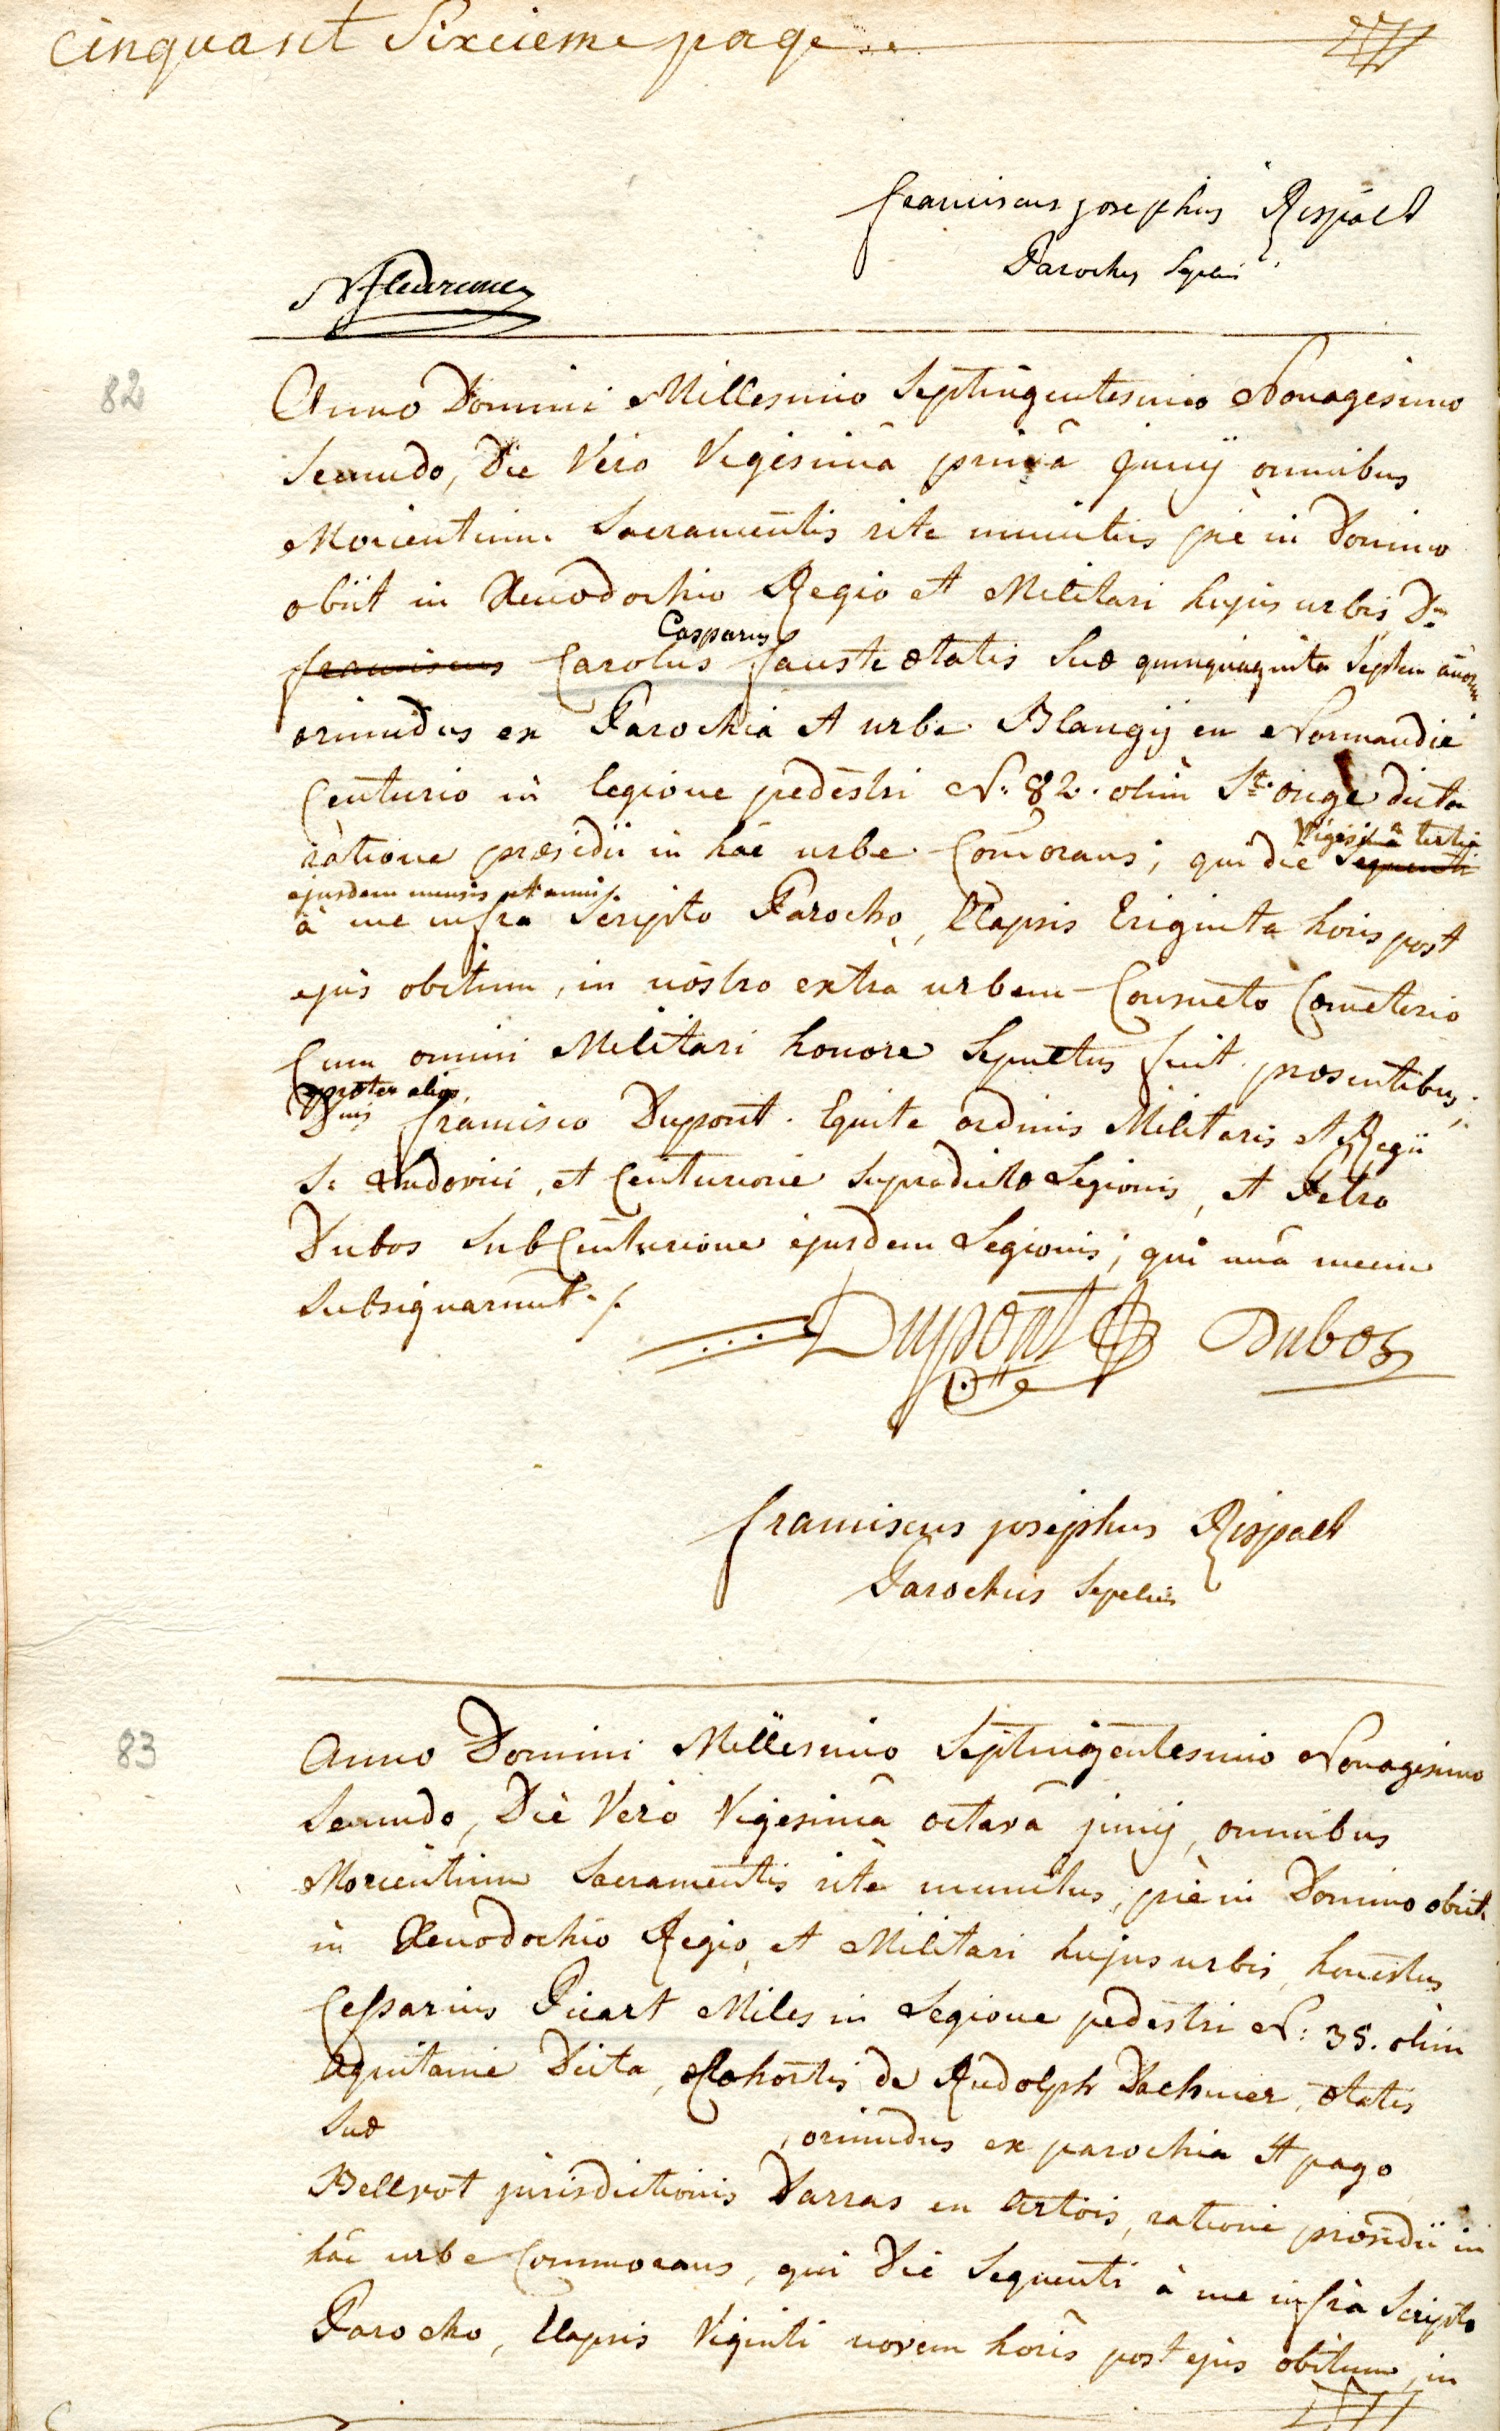 cinquant Sixcieme page
franciscus josephus Rispalt
Parochus Sepelii
82
Anno Domini Millesimo Septingentesimo Nonagesimo
Secundo, Die Vero Vigesimâ primâ Junij omnibus
Morientium Sacramentis rite munitus piè in Domino
obiit in Xenodochio Regio et Militari hujus urbis Dns
Casparus
franciscus Carolus fauste ætatis Suæ quinquaginta Septem annorum
oriundus ex Parochiâ et urbe Blangij en Normandie
Centurio in legione pedestri N: 82. olim St. onge dicta
Vigesimâ tertiâ
ratione præsidii in hâc urbe Com̄orans; qui die Sequenti
ejusdem mensis et anni
à me infra Scripto Parocho, Elapsis triginta horis post
ejus obitum, in nostro extrà urbem Consueto Cœmeterio
Cum omni Militari honore Sepultus fuit præsentibus;
præter alios,
Dnis francisco Dupont Equite ordinis Militaris et Regii
S: Ludovici, et Centurione Supradictæ Legionis, et Petro
Dubos SubCenturione ejusdem Legionis; qui unâ mecum
Subsignarunt ./.
Dupont Dubos
franciscus josephus Rispalt
Parochus Sepelii
83
Anno Domini Millesimo Septingentesimo Nonagesimo
Secundo, Diè Vero Vigesimâ octavâ junij, omnibus
Morientium Sacramentis rite munitus, piè in Domino obiit
in Xenodochio Regio, et Militari hujus urbis, honestus
Cessarius Picart Miles in Legione pedestri N: 35. olim
Aquitanie Dicta, Cohortis de Rudolph Dachmer, ætatis
Suæ , oriundus ex parochia et pago
Bellvot jurisdictionis Darras en Artois, ratione præsidii in
hâc urbe Commorans, qui Die Sequenti à me infrà Scripto
Parocho, Elapsis Viginti novem horis post ejus obitum, in